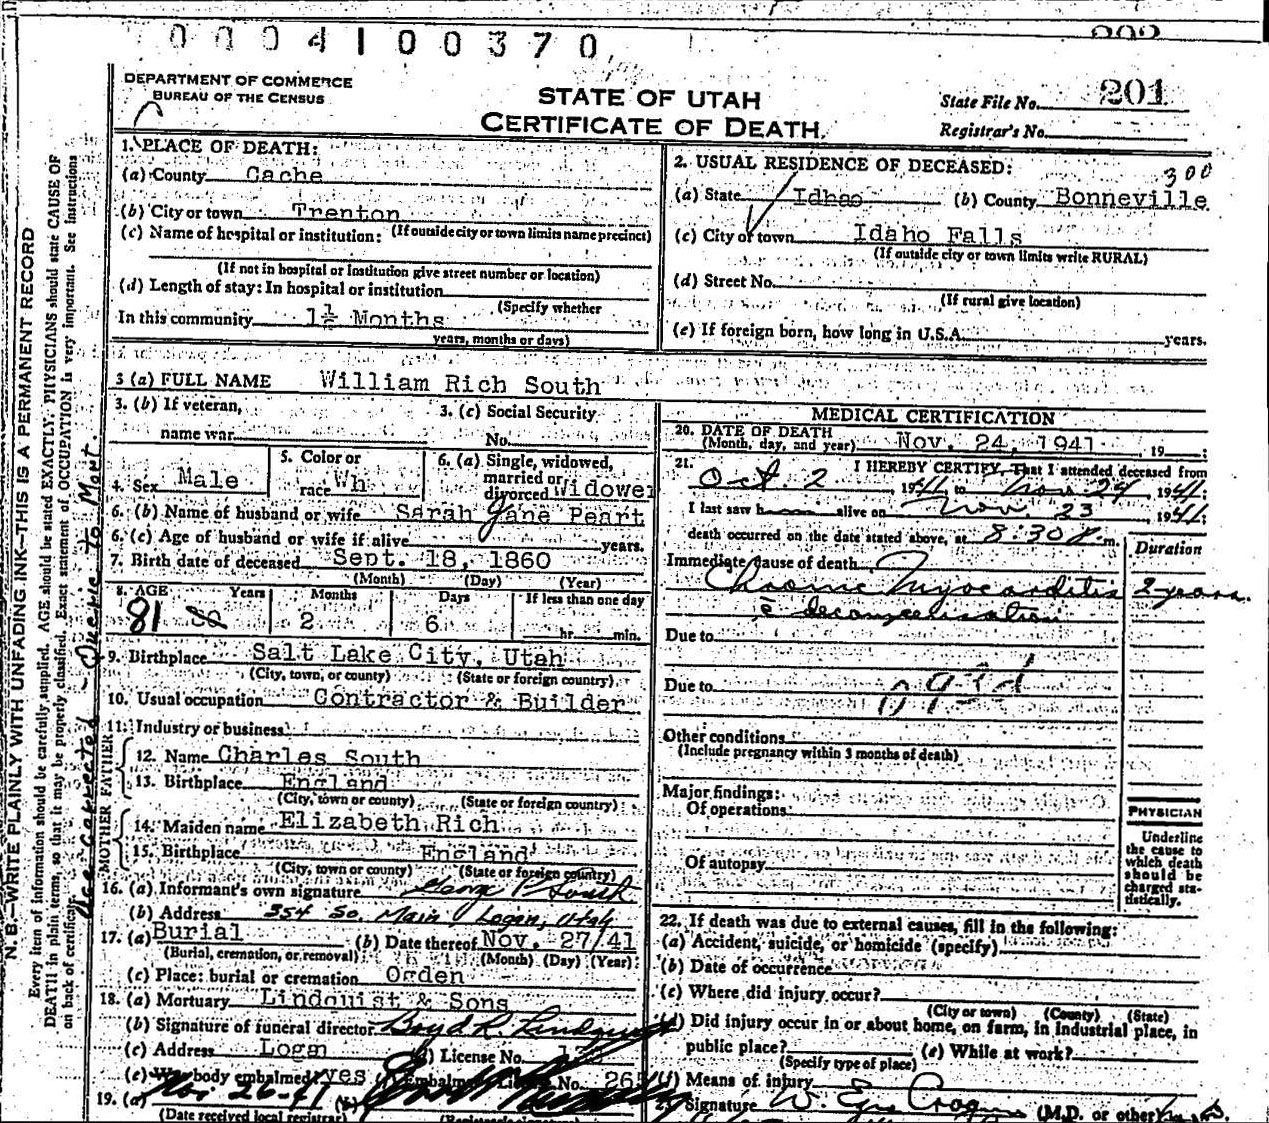 0004100370
202
DEPARTMENT OF COMMERCE
BUREAU OF THE CENSUS
STATE OF UTAH
CERTIFICATE OF DEATH.
State File No. 201
Registrar's No.
1. PLACE OF DEATH:
(a) County Cache
(b) City or town Trenton
(If outside city or town limits name precinct)
(c) Name of hospital or institution:
(If not in hospital or institution give street number or location)
(d) Length of stay: In hospital or institution
(Specify whether
In this community 1½ Months
years, months or days)
2. USUAL RESIDENCE OF DECEASED:
300
(a) State Idhao (b) County Bonneville
(c) City or town Idaho Falls
(If outside city or town limits write RURAL)
(d) Street No.
(If rural give location)
(e) If foreign born, how long in U.S.A. years.
3 (a) FULL NAME William Rich South
3. (b) If veteran,
name war
3. (c) Social Security
No.
4. Sex Male
5. Color or
race Wh
6. (a) Single, widowed,
married or
divorced Widower
6. (b) Name of husband or wife Sarah Jane Peart
6. (c) Age of husband or wife if alive years.
7. Birth date of deceased Sept. 18, 1860
(Month) (Day) (Year)
8. AGE Years Months Days If less than one day
81 80 2 6 hr. min.
9. Birthplace Salt Lake City, Utah
(City, town, or county) (State or foreign country)
10. Usual occupation Contractor & Builder
11. Industry or business
FATHER
12. Name Charles South
13. Birthplace England
(City, town or county) (State or foreign country)
MOTHER
14. Maiden name Elizabeth Rich
15. Birthplace England
(City, town or county) (State or foreign country)
16. (a) Informant's own signature George P South
(b) Address 354 So. Main Logan, Utah
17. (a) Burial (b) Date thereof Nov. 27/41
(Burial, cremation, or removal) (Month) (Day) (Year)
(c) Place: burial or cremation Ogden
18. (a) Mortuary Lindquist & Sons
(b) Signature of funeral director Boyd R. Lindquist
(c) Address Logan License No.
(e) Was body embalmed? yes Embalmer License No. 265
19. (a) Nov 26-41 (b)
(Date received local registrar) (Registrar's signature)
MEDICAL CERTIFICATION
20. DATE OF DEATH
(Month, day, and year) Nov. 24, 1941, 19
21. I HEREBY CERTIFY, That I attended deceased from
Oct. 2 1941 to Nov 24 1941;
I last saw h alive on Nov 23 1941;
death occurred on the date stated above, at 8:30 P. m.
Duration
Immediate cause of death
Chronic Myocarditis 2 years.
c decompensation
Due to
Due to
Other conditions
(Include pregnancy within 3 months of death)
Major findings:
Of operations
Of autopsy
PHYSICIAN
Underline
the cause to
which death
should be
charged sta-
tistically.
22. If death was due to external causes, fill in the following:
(a) Accident, suicide, or homicide (specify)
(b) Date of occurrence
(c) Where did injury occur?
(City or town) (County) (State)
(d) Did injury occur in or about home, on farm, in industrial place, in
public place? (e) While at work?
(Specify type of place)
(f) Means of injury
23. Signature W. (M.D. or other)
N. B.—WRITE PLAINLY WITH UNFADING INK—THIS IS A PERMANENT RECORD
Every item of information should be carefully supplied. AGE should be stated EXACTLY. PHYSICIANS should state CAUSE OF
DEATH in plain terms, so that it may be properly classified. Exact statement of OCCUPATION is very important. See instructions
on back of certificate.
Age corrected - Querie to Mort.